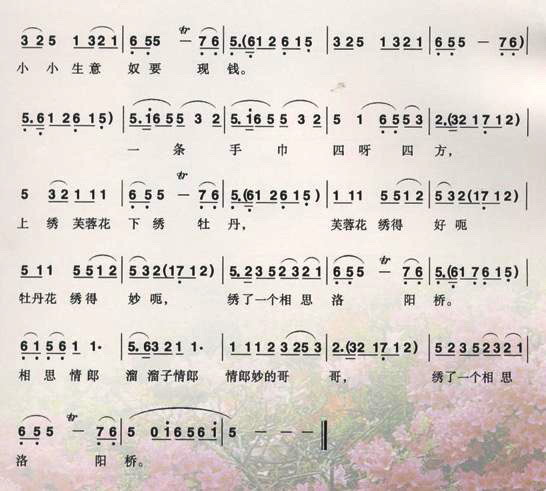 3 2 5 1 3 2 1 | 6 5 5 — 7 6 | 5. (6 1 2 6 1 5 | 3 2 5 1 3 2 1 | 6 5 5 — 7 6 |
小 小 生 意 奴 要 现 钱。
5. 6 1 2 6 1 5) | 5. 1 6 5 5 3 2 | 5. 1 6 5 5 3 2 | 5 1 6 5 5 3 | 2. (3 2 1 7 1 2) |
一 条 手 巾 四 呀 四 方,
5 3 2 1 1 1 | 6 5 5 — 7 6 | 5. (6 1 2 6 1 5) | 1 1 1 5 5 1 2 | 5 3 2 (1 7 1 2) |
上 绣 芙蓉花 下 绣 牡 丹, 芙蓉花 绣得 好 呃
5 1 1 5 5 1 2 | 5 3 2 (1 7 1 2) | 5. 2 3 5 2 3 2 1 | 6 5 5 — 7 6 | 5. (6 1 7 6 1 5) |
牡丹花 绣得 妙 呃, 绣了一个相思 洛 阳 桥。
6 1 5 6 1 1· | 5. 6 3 2 1 1· | 1 1 1 2 3 2 5 3 | 2. (3 2 1 7 1 2) | 5 2 3 5 2 3 2 1 |
相 思 情 郎 溜 溜子情郎 情郎妙的哥 哥, 绣了一个相思
6 5 5 — 7 6 | 5 0 1 6 5 6 1 | 5 — — ‖
洛 阳 桥。